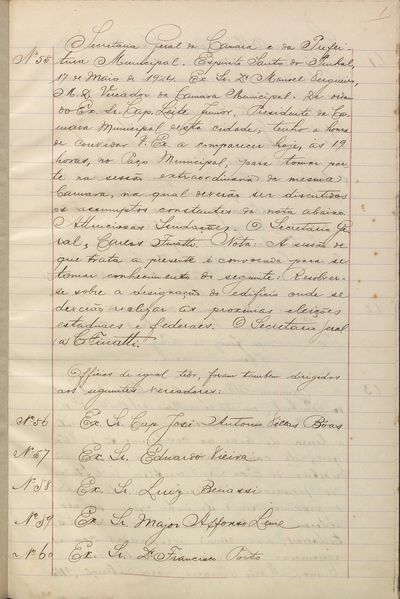 1
Nº 55 Secretaria Geral da Camara e da Prefei-
tura Municipal. Espirito Santo do Pinhal,
17 de Maio de 1924. Ex. Sr. Dr. Manoel Cerqueira,
M. D. Vereador da Camara Municipal. De ordem
do Ex. Sr. Cap. Leite Junior, Presidente da Ca-
mara Municipal desta cidade, tenho a honra
de convidar V. Ex. a comparecer hoje, ás 19
horas, no Paço Municipal, para tomar par-
te na sessão extraordinaria da mesma
Camara, na qual deverão ser discutidos
os assumptos constantes da nota abaixo.
Attenciosas Saudações. O Secretario Ge-
ral, Carlos Finatti. Nota: A sessão de
que trata a presente é convocada para se
tomar conhecimento do seguinte: Resolver-
se sobre a designação do edificio onde se
deverão realizar as proximas eleições
estaduaes e federaes. O Secretario Geral
(a) C. Finatti.
Officios de igual teor, foram tambem dirigidos
aos seguintes vereadores:
Nº 56 Ex. Sr. Cap. José Antonio Villas Bôas
Nº 57 Ex. Sr. Eduardo Vieira
Nº 58 Ex. Sr. Luiz Benassi
Nº 59 Ex. Sr. Major Affonso Leme
Nº 60 Ex. Sr. Dr. Francisco Porto